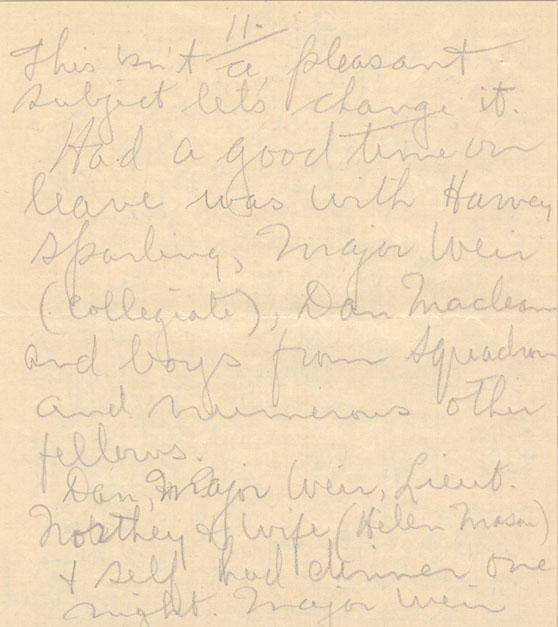 11.
This isn't a pleasant
subject let's change it.
Had a good time on
leave was with Harvey
Sparling, Major Weir
(Collegiate), Dan Maclean
and boys from Squadron
and numerous other
fellows.
Dan, Major Weir, Lieut.
Northey & wife (Helen Mason)
& self had dinner one
night. Major Weir